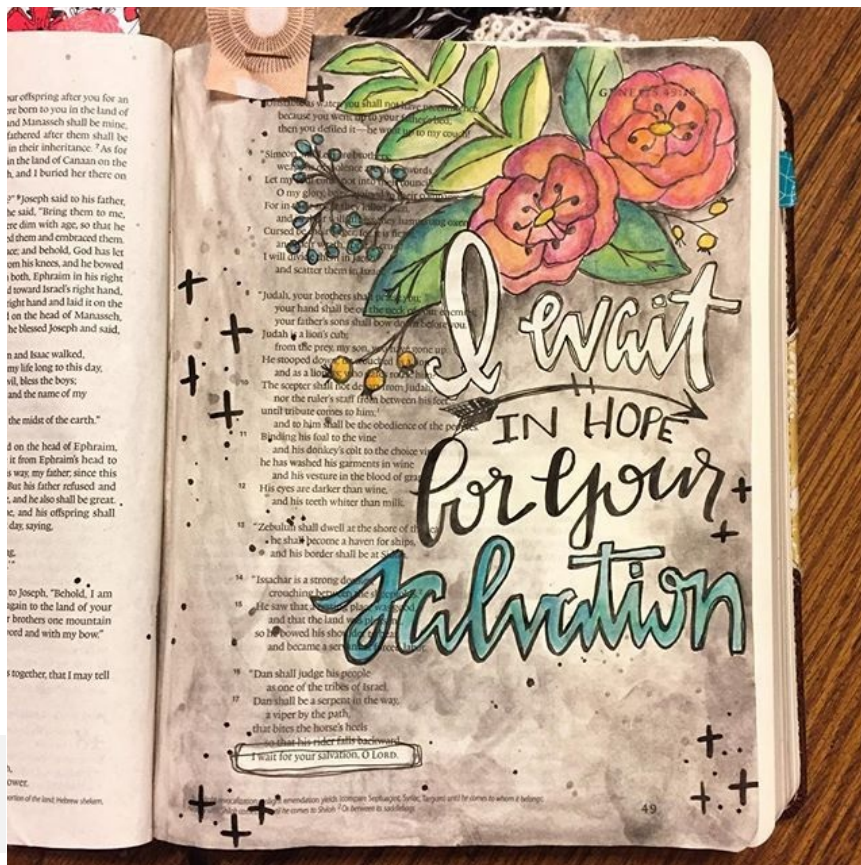 ur offspring after you for an
re born to you in the land of
nd Manasseh shall be mine,
fathered after them shall be
in their inheritance. 7 As for
in the land of Canaan on the
h, and I buried her there on
8 Joseph said to his father,
he said, "Bring them to me,
re dim with age, so that he
d them and embraced them.
ce; and behold, God has let
om his knees, and he bowed
both, Ephraim in his right
d toward Israel's right hand,
right hand and laid it on the
on the head of Manasseh,
he blessed Joseph and said,
m and Isaac walked,
my life long to this day,
vil, bless the boys;
and the name of my
the midst of the earth."
d on the head of Ephraim,
it from Ephraim's head to
s way, my father; since this
But his father refused and
, and he also shall be great.
e, and his offspring shall
day, saying,
to Joseph, "Behold, I am
gain to the land of your
r brothers one mountain
word and with my bow."
s together, that I may tell
ower.
portion of the land; Hebrew shekem,
GENESIS 49:18
water you shall not have
because you went up to your father's bed;
then you defiled it—he went up to my couch!
5 "Simeon brothers;
violence swords.
6 Let my not into their council;
O my glory, be
For in
and
7 Cursed be anger, for it is
and wrath,
I will divide them in Jacob
and scatter them in
8 "Judah, your brothers shall praise you;
your hand shall be on the neck of your enemies;
your father's sons shall bow down before you.
9 Judah is a lion's cub;
from the prey, my son, you have gone up.
He stooped down; he crouched
and as a lioness; who
10 The scepter shall not depart from Judah,
nor the ruler's staff from between his feet,
until tribute comes to him;
and to him shall be the obedience of the peoples.
11 Binding his foal to the vine
and his donkey's colt to the choice vine,
he has washed his garments in wine
and his vesture in the blood of
12 His eyes are darker than wine,
and his teeth whiter than milk.
13 "Zebulun shall dwell at the shore of the sea;
he shall become a haven for ships,
and his border shall be at
14 "Issachar is a strong donkey,
crouching between the sheepfolds.
15 He saw that a resting place was good,
and that the land was pleasant,
so he bowed his shoulder to bear,
and became a servant
16 "Dan shall judge his people
as one of the tribes of Israel.
17 Dan shall be a serpent in the way,
a viper by the path,
that bites the horse's heels
so that his rider falls backward.
I wait for your salvation, O LORD.
I wait
IN HOPE
for your
salvation
emendation yields (compare Septuagint, Syriac, Targum) until he comes to whom it belongs;
he comes to Shiloh 2 Or between its saddlebags
49